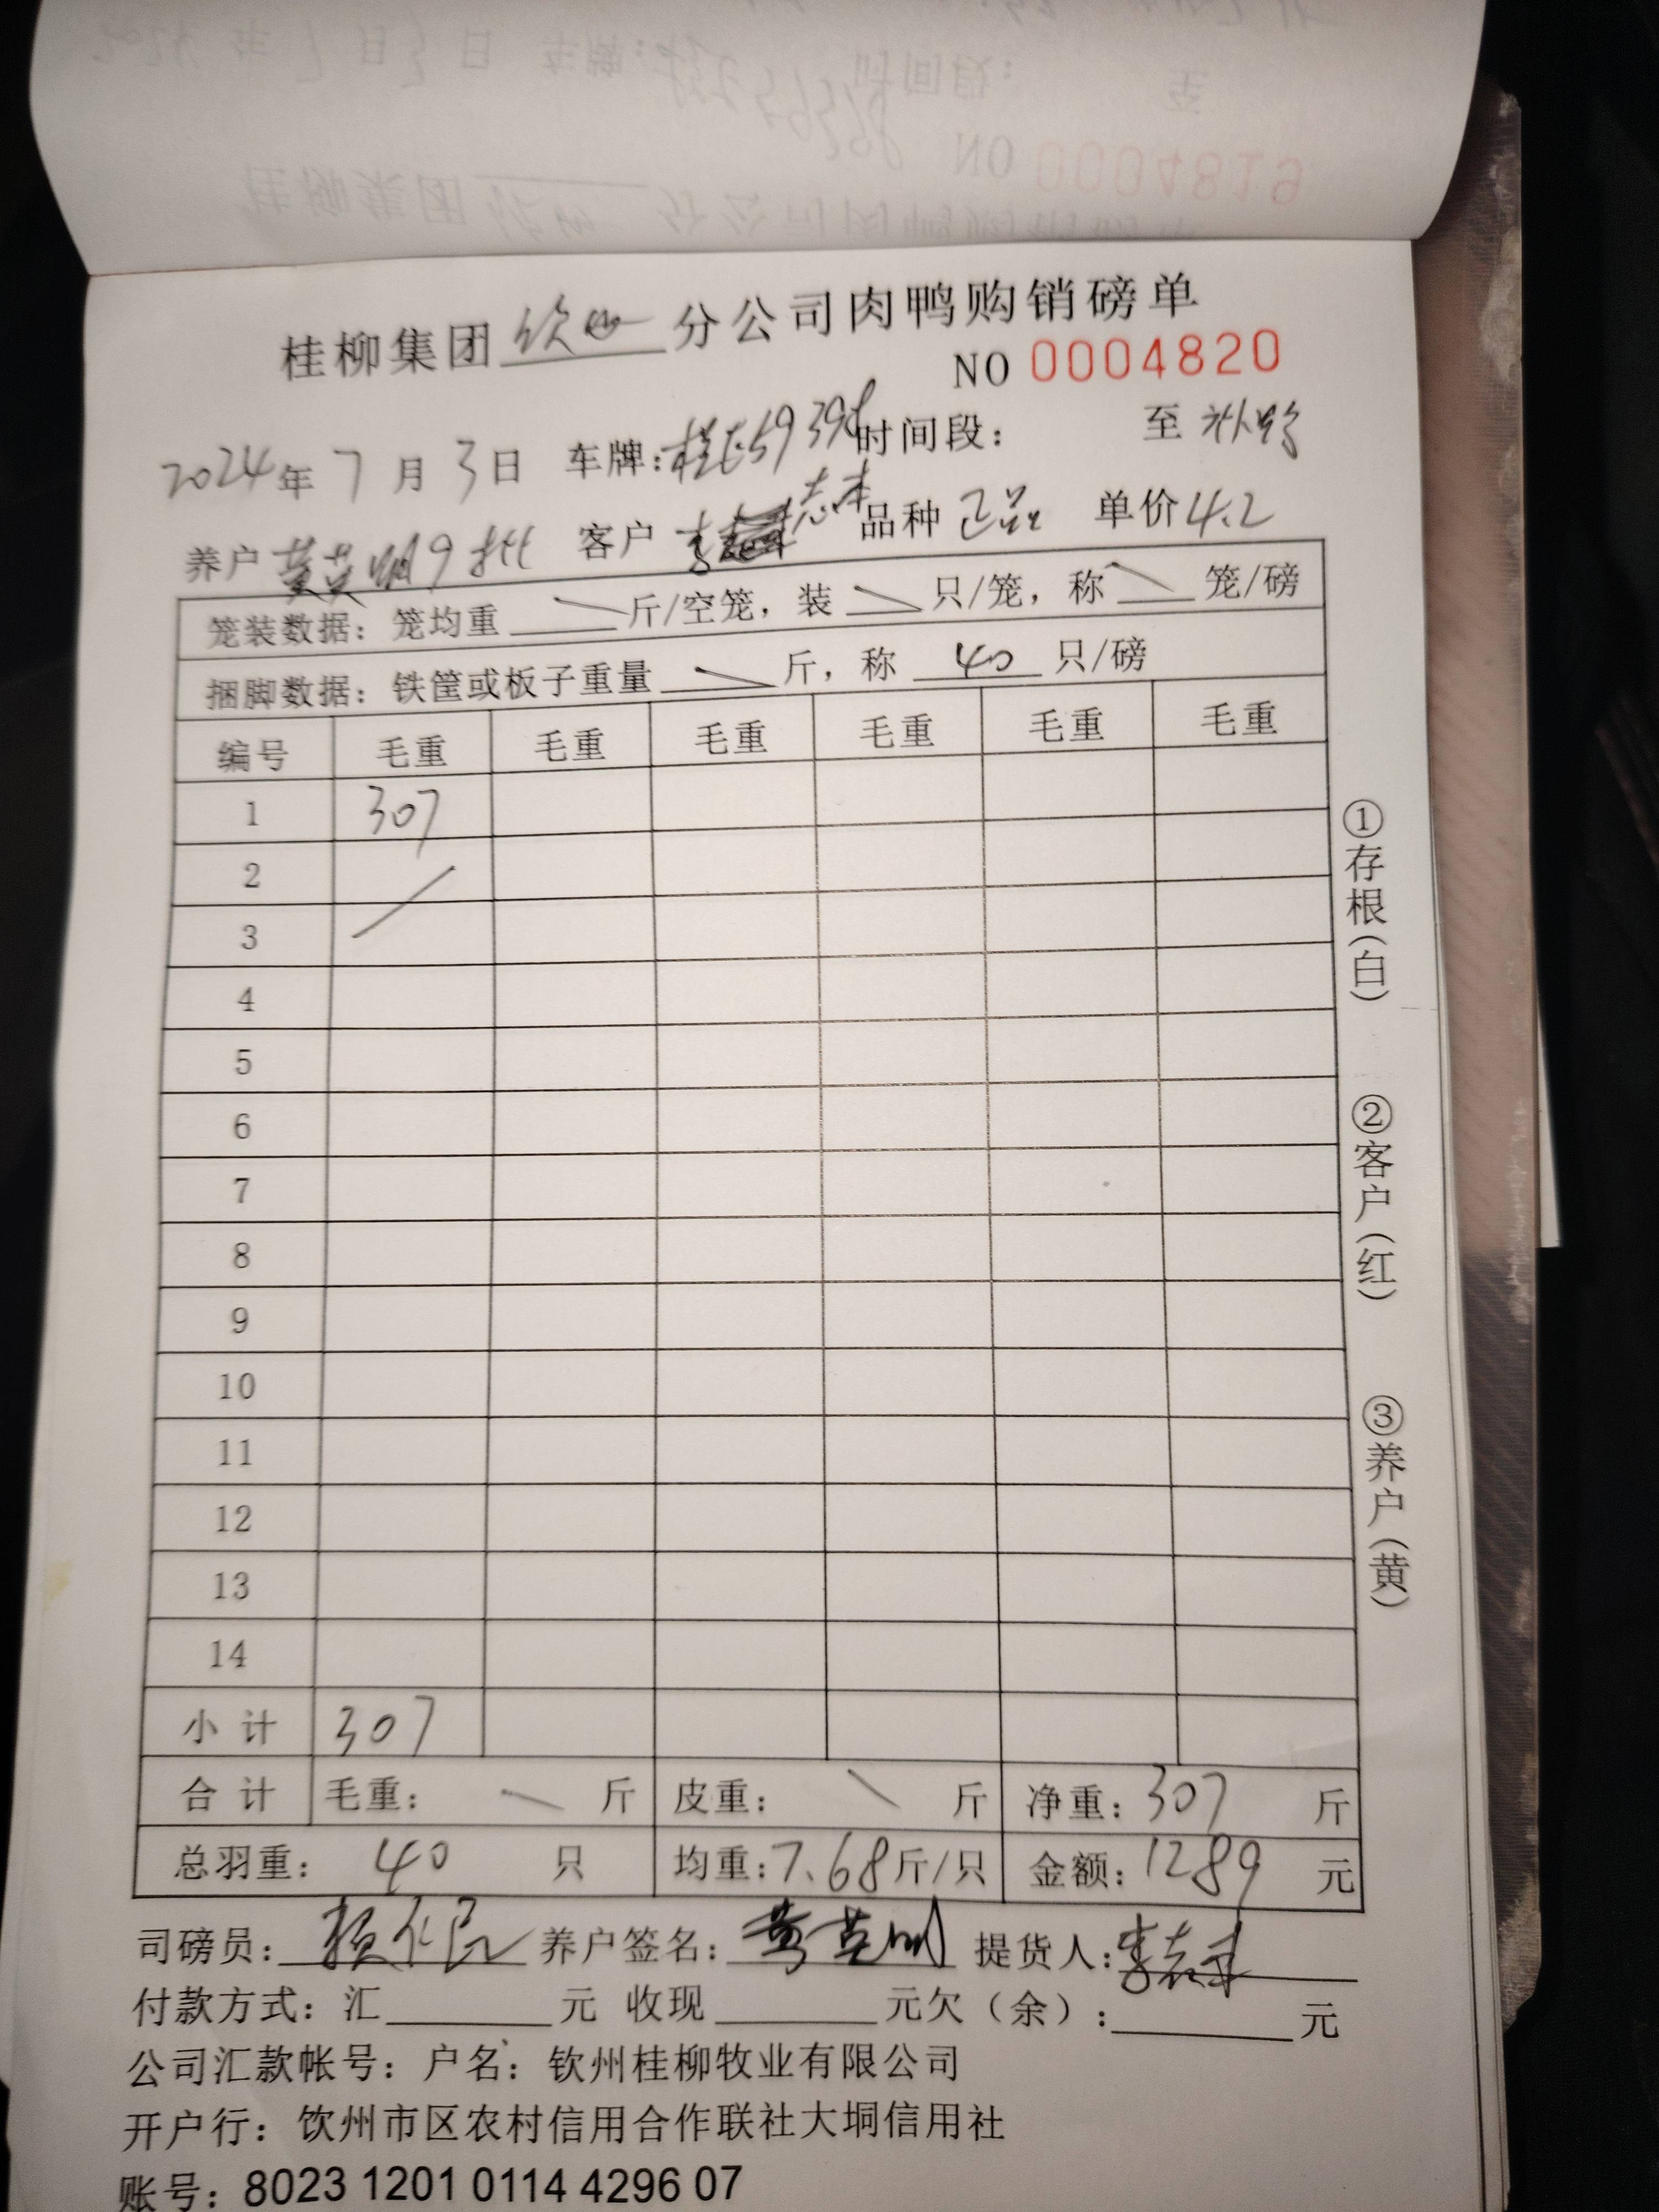 桂柳集团 钦州 分公司肉鸭购销磅单
NO 0004820
2024年 7 月 3 日 车牌: 时间段： 至 补野
养户 黄英明9批 客户 李 志丰 品种 正品 单价 4.2
笼装数据：笼均重 斤/空笼，装 只/笼，称 笼/磅
捆脚数据：铁筐或板子重量 斤，称 40 只/磅
编号 毛重 毛重 毛重 毛重 毛重 毛重
1 307
2
3
4
5
6
7
8
9
10
11
12
13
14
小 计 307
合 计 毛重： 斤 皮重： 斤 净重：307 斤
总羽重： 40 只 均重：7.68斤/只 金额：1289 元
司磅员： 养户签名：黄英明 提货人：李志丰
付款方式：汇 元 收现 元欠（余）： 元
公司汇款帐号：户名：钦州桂柳牧业有限公司
开户行：饮州市区农村信用合作联社大垌信用社
账号：8023 1201 0114 4296 07
①存根（白） ②客户（红） ③养户（黄）